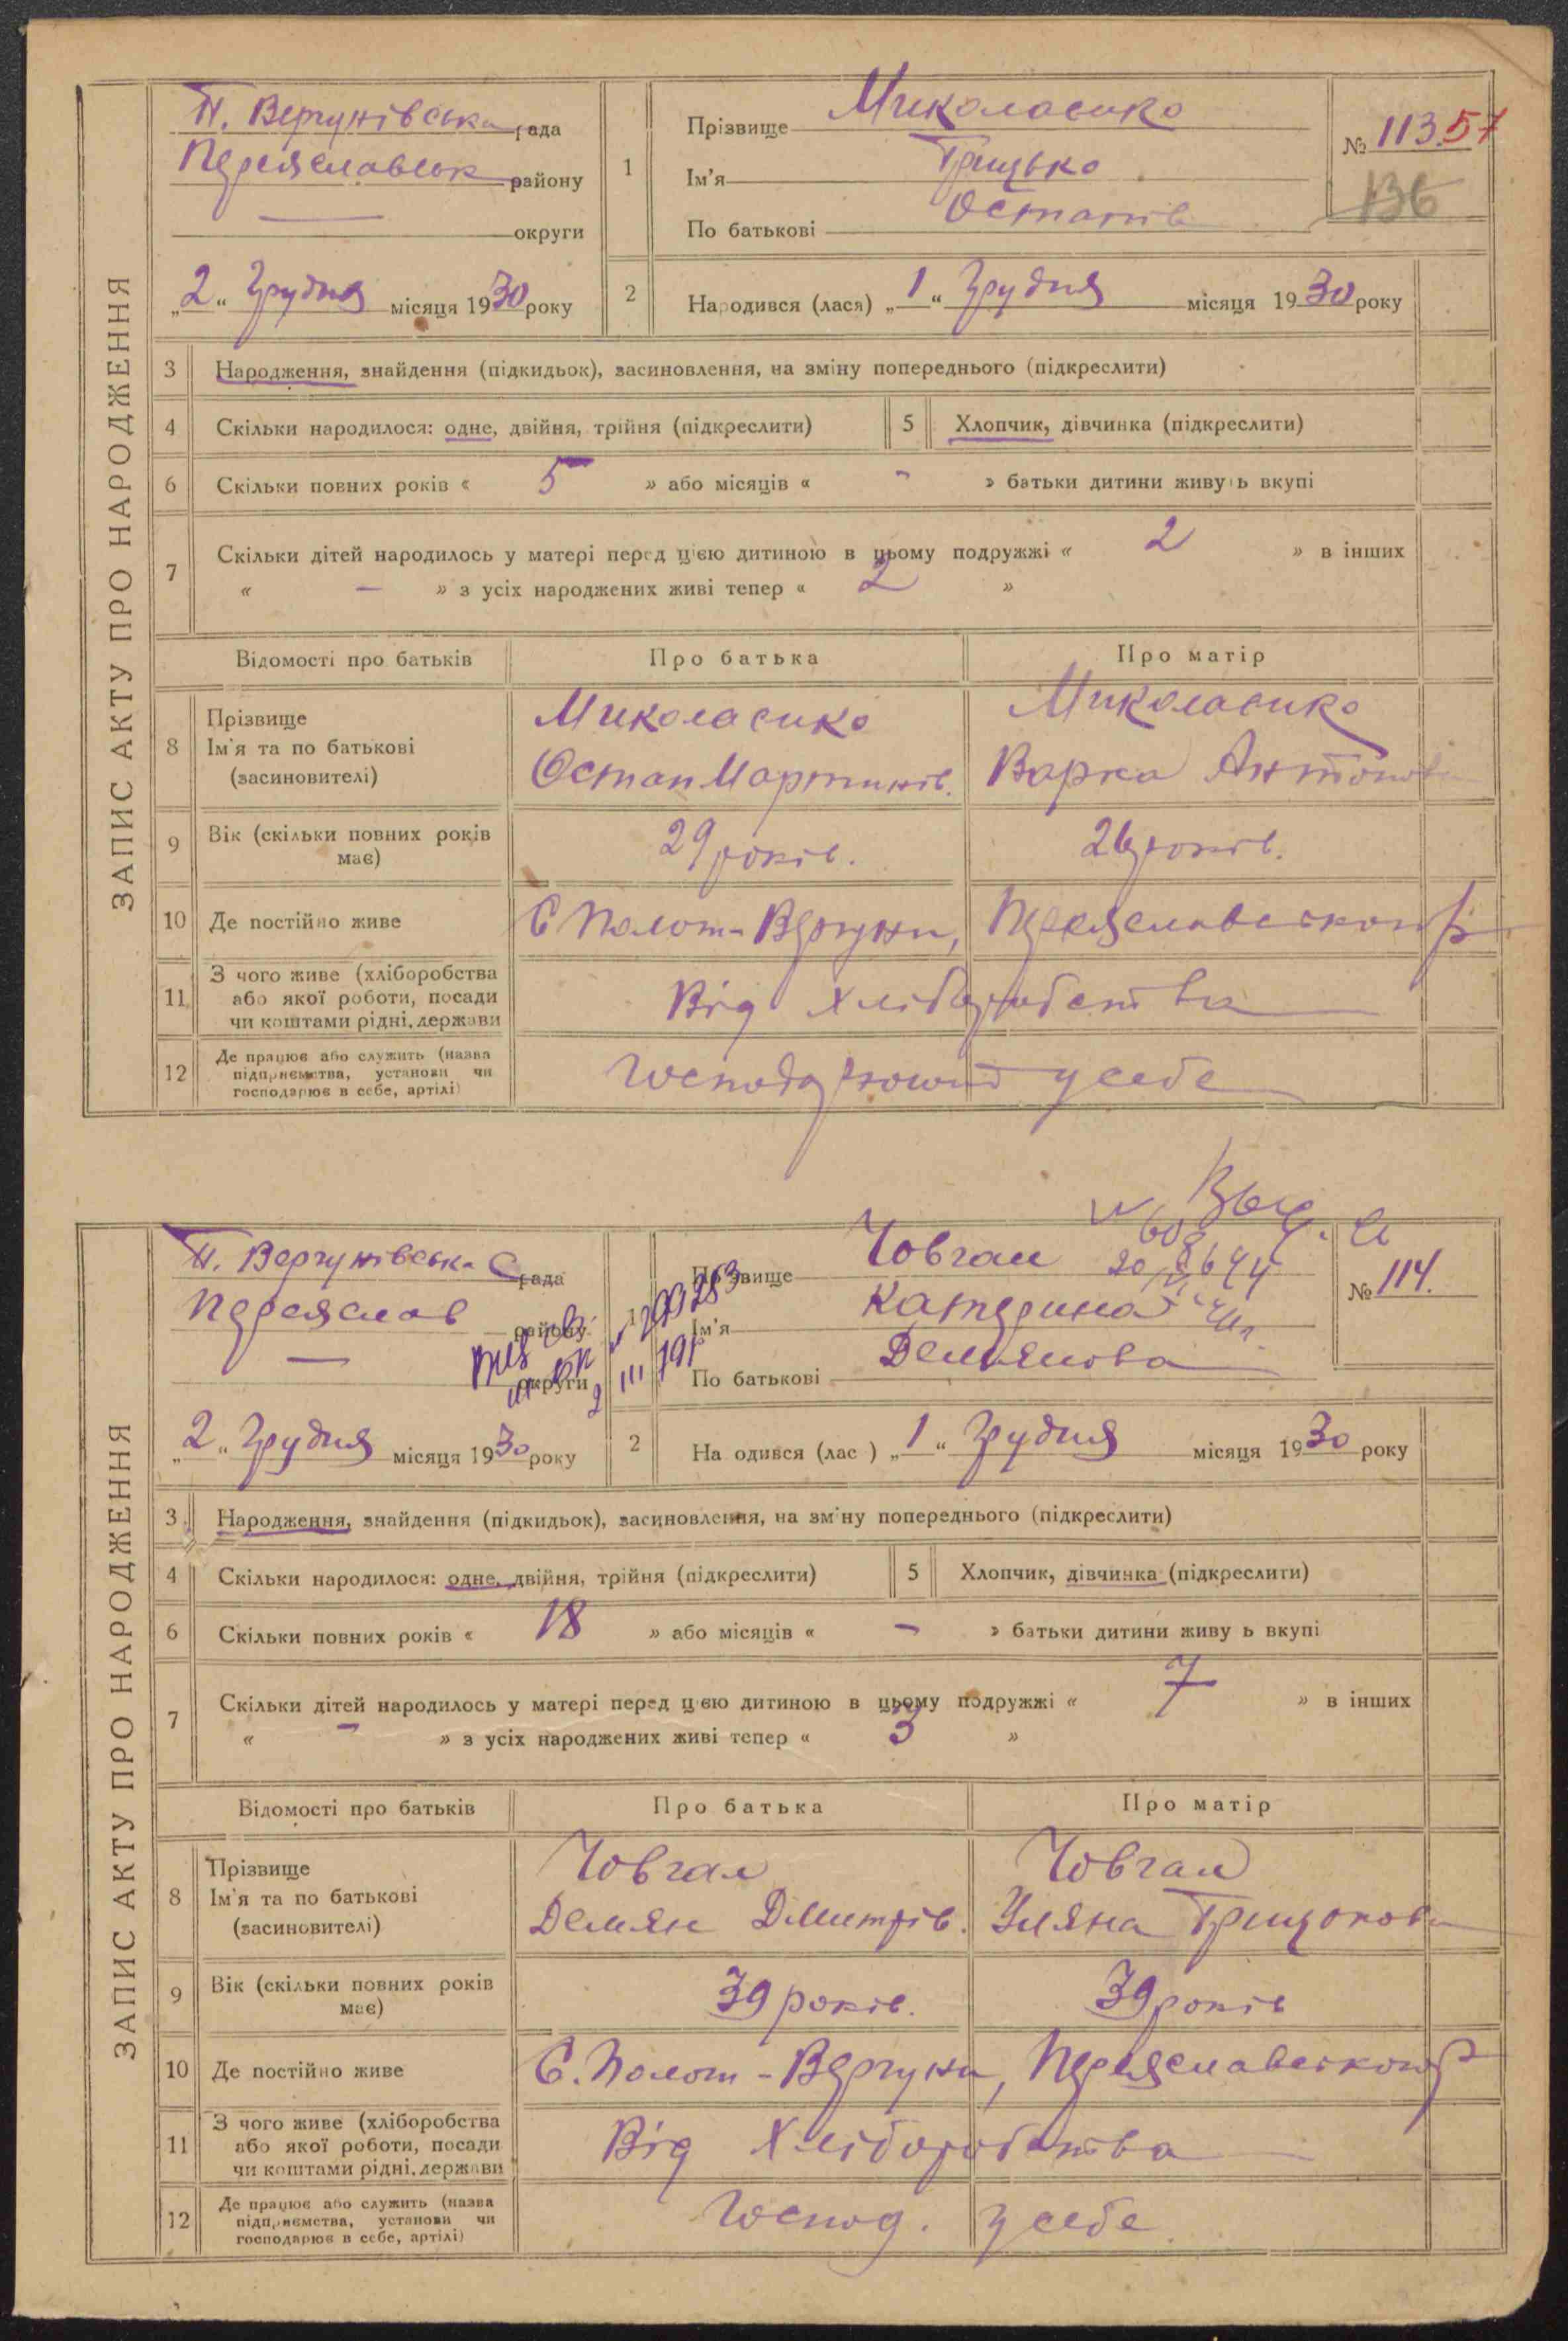 ЗАПИС АКТУ ПРО НАРОДЖЕННЯ
П. Вергунівська рада
Переяславськ району
округи
„2“ Грудня місяця 1930 року
1
Прізвище Миколаєнко
Ім'я Грицько
По батькові Остапів
№ 113. 57
136
2
Народився (лася) „1“ Грудня місяця 1930 року
3 Народження, знайдення (підкидьок), засиновлення, на зміну попереднього (підкреслити)
4 Скільки народилося: одне, двійня, трійня (підкреслити) 5 Хлопчик, дівчинка (підкреслити)
6 Скільки повних років « 5 » або місяців « - » батьки дитини живуть вкупі
7 Скільки дітей народилось у матері перед цією дитиною в цьому подружжі « 2 » в інших
« — » з усіх народжених живі тепер « 2 »
Відомості про батьків Про батька Про матір
8 Прізвище Ім'я та по батькові (засиновителі)
Миколаєнко Миколаєнко
Остап Мартинів. Варка Антонова
9 Вік (скільки повних років має) 29 років. 26 років.
10 Де постійно живе С Полот-Вергуни, Переяславського р
11 З чого живе (хліборобства або якої роботи, посади чи коштами рідні, держави Від хліборобства
12 Де працює або служить (назва підприємства, установи чи господарює в себе, артілі) Господарюють у себе
ЗАПИС АКТУ ПРО НАРОДЖЕННЯ
П. Вергунівська С рада
Переяслав району
округи
„2“ Грудня місяця 1930 року
1
Прізвище Човган
Ім'я Катерина
По батькові Демьянова
№ 114.
2
На одився (лас ) „1“ Грудня місяця 1930 року
3 Народження, знайдення (підкидьок), засиновлення, на зміну попереднього (підкреслити)
4 Скільки народилося: одне, двійня, трійня (підкреслити) 5 Хлопчик, дівчинка (підкреслити)
6 Скільки повних років « 18 » або місяців « - » батьки дитини живу ь вкупі
7 Скільки дітей народилось у матері перед цією дитиною в цьому подружжі « 7 » в інших
« - » з усіх народжених живі тепер « 3 »
Відомості про батьків Про батька Про матір
8 Прізвище Ім'я та по батькові (засиновителі)
Човган Човган
Демян Дмитрів. Уляна Грицькова
9 Вік (скільки повних років має) 39 років. 39 років
10 Де постійно живе С. Полот-Вергуни, Переяславського р
11 З чого живе (хліборобства або якої роботи, посади чи коштами рідні, держави Від Хліборобства
12 Де працює або служить (назва підприємства, установи чи господарює в себе, артілі) Господ. у себе